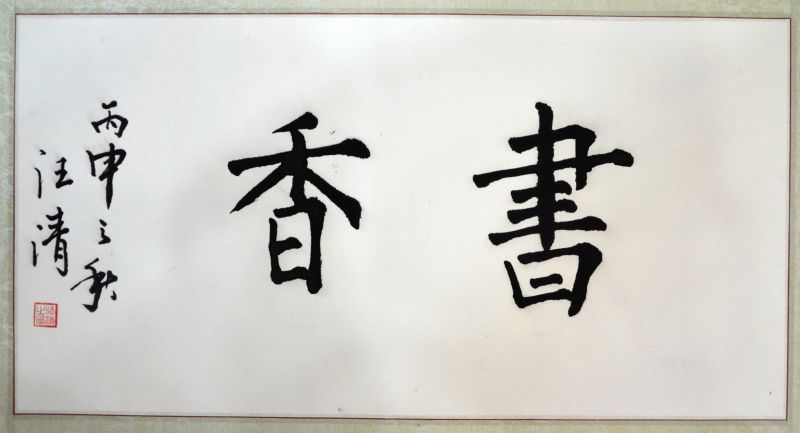 書香
丙申之秋
汪清